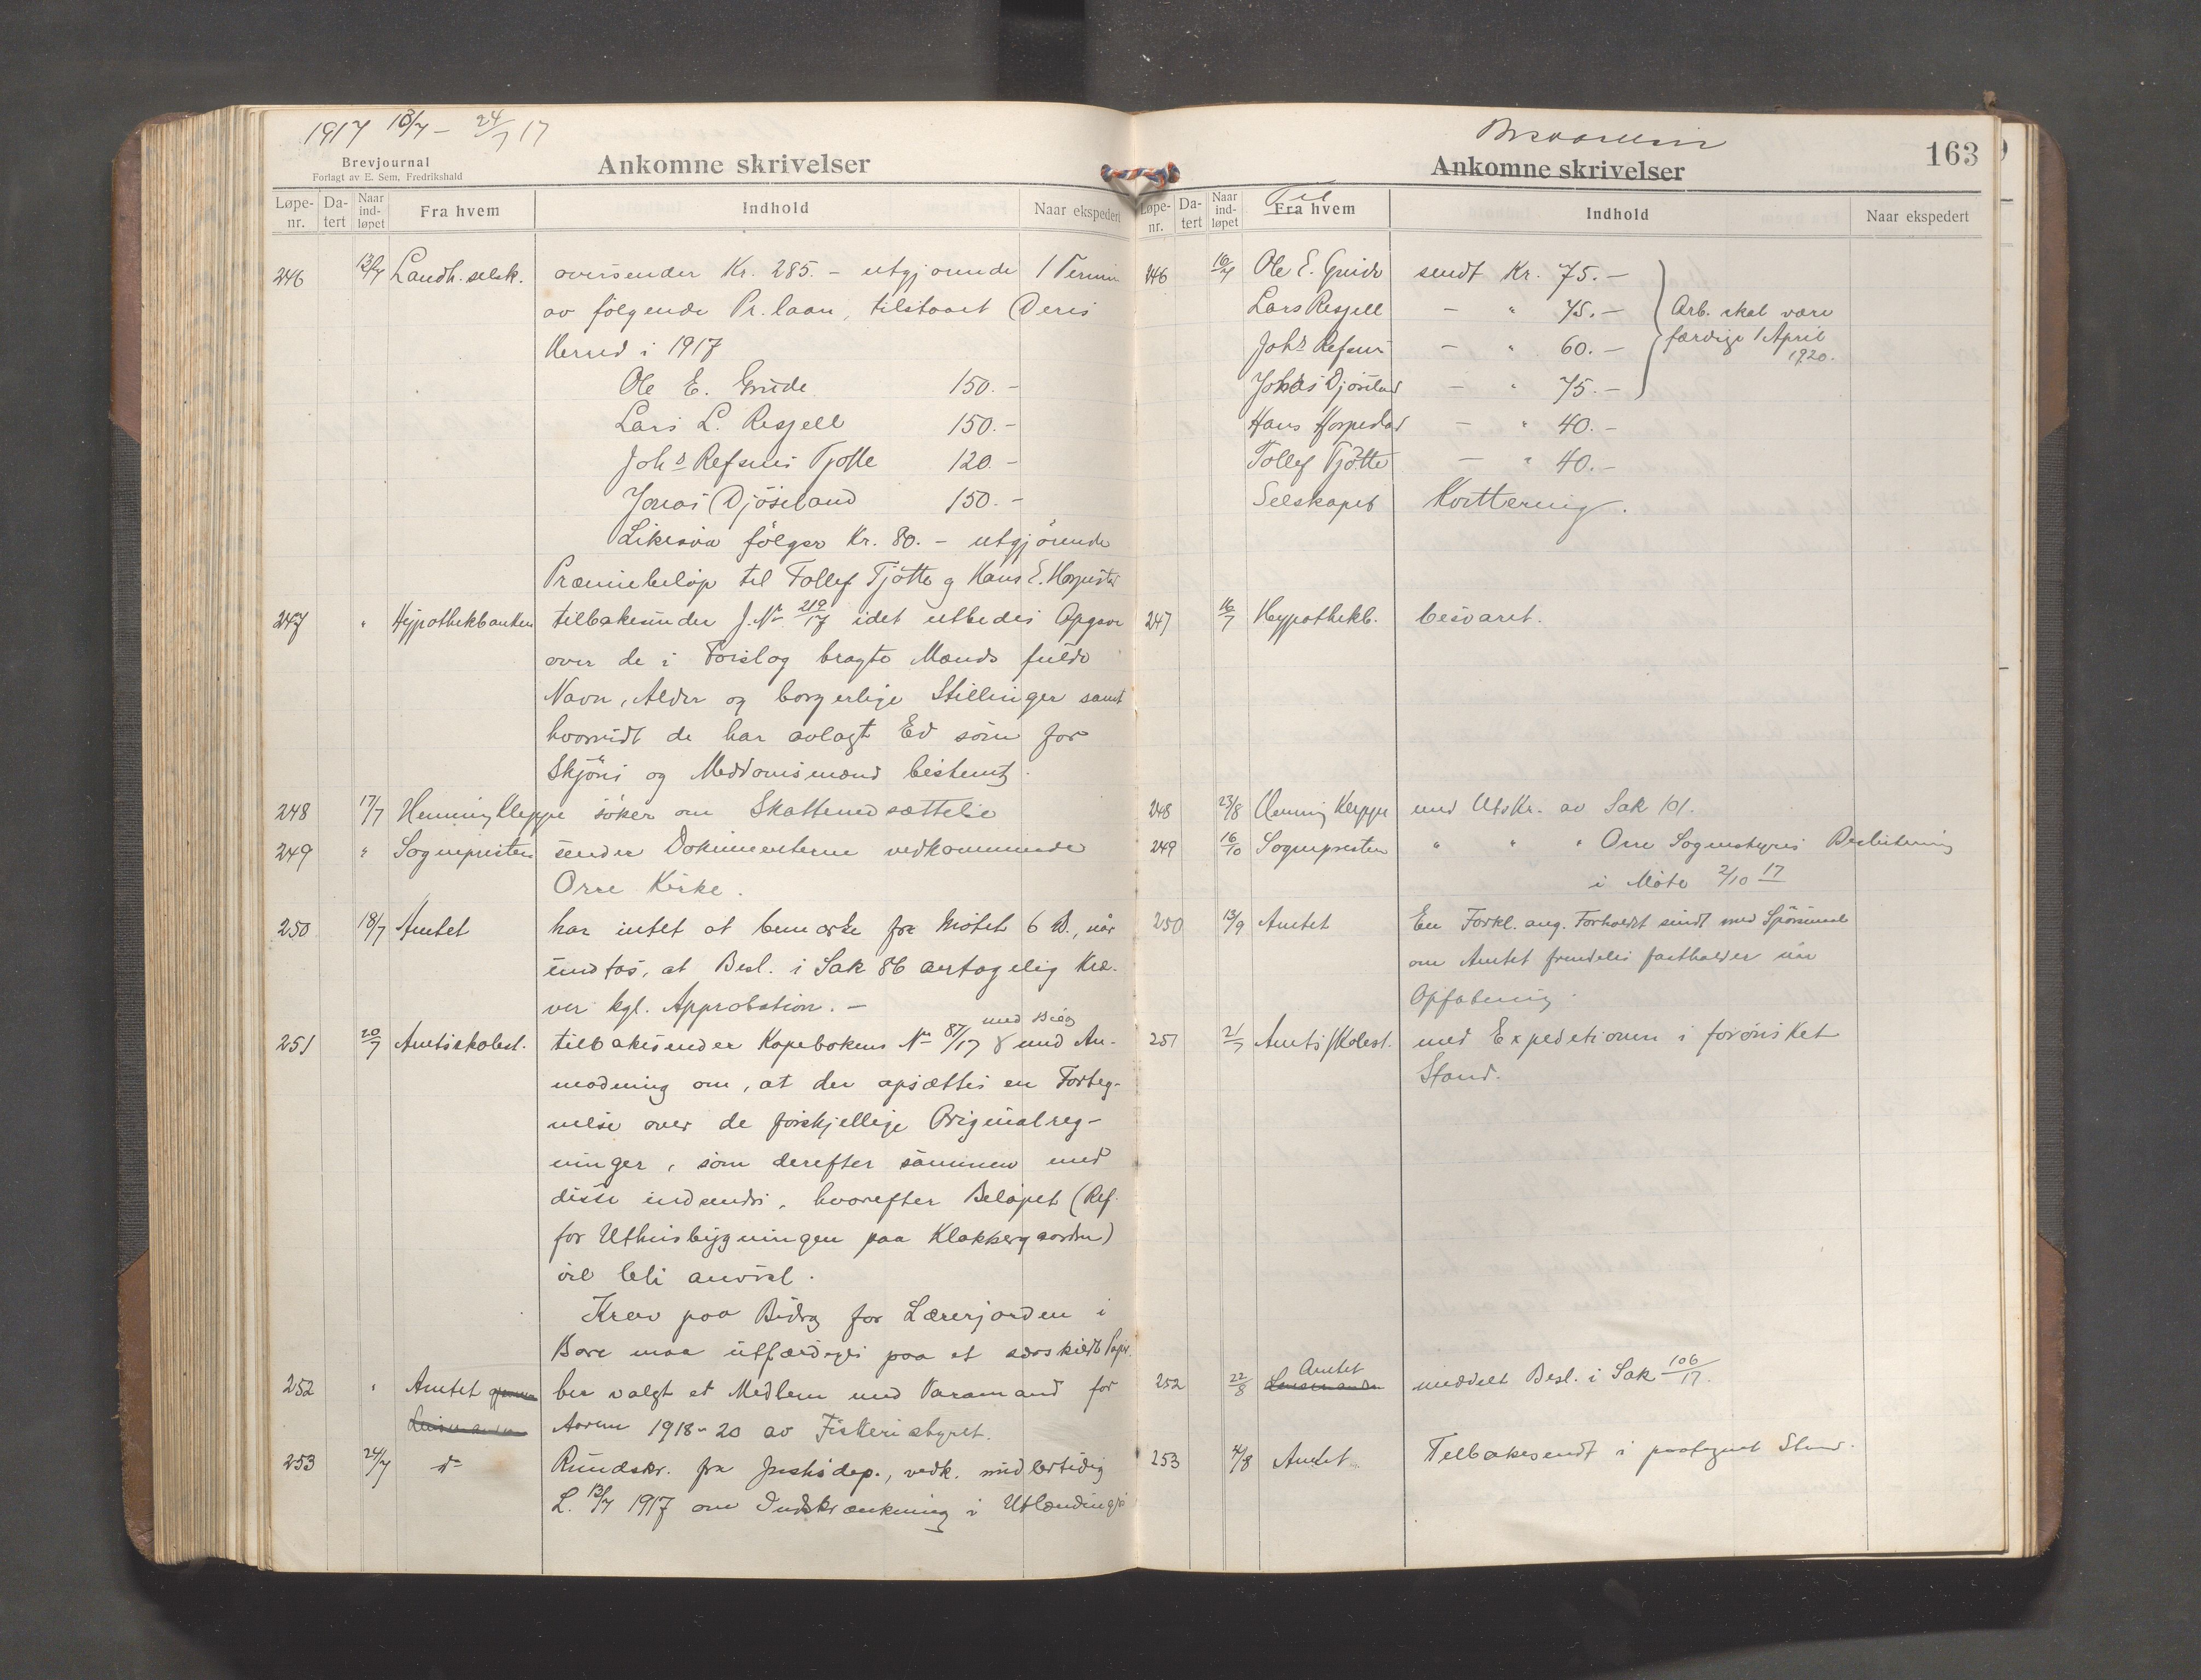 1917 13/7 - 24/7 17
Brevjournal
Forlagt av E. Sem, Fredrikshald
Ankomne skrivelser
Løpe-nr. Da-tert Naar ind-løpet Fra hvem Indhold Naar ekspedert
246 13/7 Landh. selsk. oversender Kr. 285.- utgjørende 1 Termin
av følgende Pr. laan, tilstaaet Deres
Herred i 1917
Ole E. Grude 150.-
Lars L. Resjell 150.-
Johs Refsnes Tjøtte 120.-
Jonas Djöseland 150.-
Likesaa følger Kr. 80.- utgjørende
Præmiebeløp til Tollef Tjøtte og Hans E. Horpestad
247 " Hypothekbanken tilbakesender J. Nr 219/17 idet utbedes Opgave
over de i Forslag bragte Mænds fulde
Navn, Alder og borgerlige Stillinger samt
hvorvidt de har avlagt Ed som for
Skjöns og Meddomsmænd bestemt.
248 17/7 Henning Kleppe söker om Skattenedsættelse
249 " Sognepresten sender Dokumenterne vedkommende
Orre Kirke.
250 18/7 Amtet har intet at bemerke fra Møtet 6 D., naar
undtas, at Besl. i Sak 86 antagelig kræ-
ver kgl. Approbation. -
med Bilag
251 20/7 Amtsskolest. tilbakesender Kopebokens Nr 87/17 & med An-
modning om, at der opsættes en Forteg-
nelse over de forskjellige Originalreg-
ninger, som derefter sammen med
disse indsendes, hvorefter Beløpet (Ref.
for Uthusbygningen paa Klokkergaarden)
vil bli anvist.
Krav paa Bidrag for Lærerjorden i
Bore maa utfærdiges paa et særskildt Papir.
252 " Amtet ber valgt et Medlem med Varamand for
Aarene 1918-20 av Fiskeristyret.
253 24/7 do Rundskr. fra Justisdep., vedk. midlertidig
L. 13/7 1917 om Indskrænkning i Utlændinges
Besvarelser
163
Ankomne skrivelser
Til
Løpe-nr. Da-tert Naar ind-løpet Fra hvem Indhold Naar ekspedert
246 16/7 Ole E. Grude sendt Kr. 75.-
Lars Resjell - " 75.- Arb. skal være
Johs Refsnes - " 60.- færdige 1 April
1920.
Johs Djöseland - " 75.-
Hans Horpestad - " 40.-
Tollef Tjøtte - " 40.-
Selskapet Kvittering.
247 16/7 Hypothekb. besvaret.
248 23/8 Henning Kleppe med Utskr. av Sak 101.
249 16/10 Sognepresten " " " Orre Sognestyres Beslutning
i Møte 2/10 17
250 13/9 Amtet En Forkl. ang. Forholdet sendt med Spörsmaal
om Amtet fremdeles fastholder sin
Opfatning.
251 21/7 Amtsskolest. med Expeditionen i forönsket
Stand.
Amtet
252 22/8 Lensmanden meddelt Besl. i Sak 106/17.
253 4/8 Amtet. Tilbakesendt i paategnet Stand.